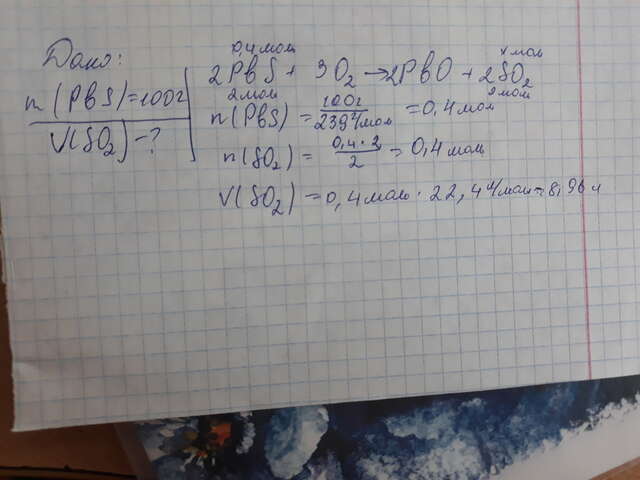 Дано:
m(PbS)=100г
V(SO₂)-?
0,4моль x моль
2PbS + 3O₂ → 2PbO + 2SO₂
2моль 2моль
n(PbS) = 100г / 239г/моль = 0,4 моль
n(SO₂) = 0,4·2 / 2 = 0,4 моль
V(SO₂) = 0,4моль · 22,4л/моль = 8,96 л